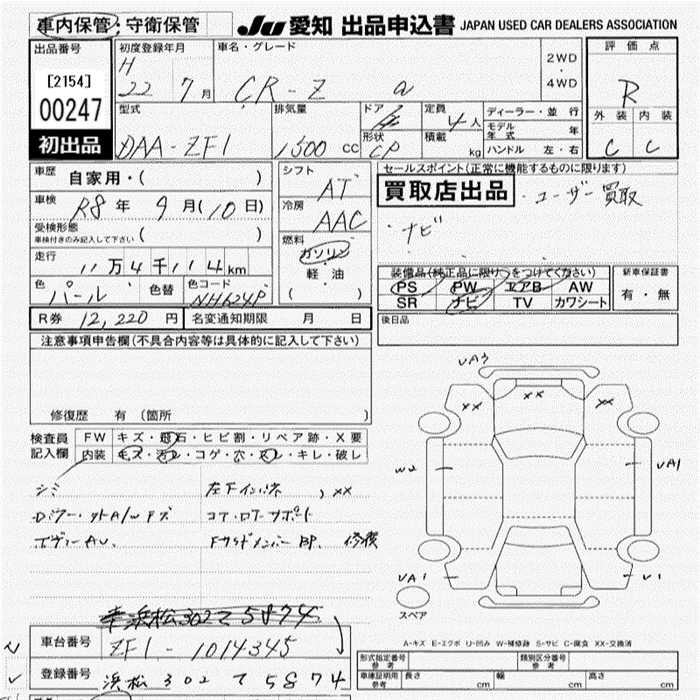 車内保管・守衛保管
JU 愛知 出品申込書 JAPAN USED CAR DEALERS ASSOCIATION
出品番号
[2154]
00247
初出品
初度登録年月
H 22 7月
車名・グレード
CR-Z α
2WD・4WD
評価点
R
外装 内装
C C
型式
DAA-ZF1
排気量
1500 cc
ドア
形状
CP
定員
4人
積載
kg
ディーラー・並行
モデル年式 年
ハンドル 左・右
車歴
自家用・( )
車検
R8年 9月(10日)
受検形態
車検付きのみ記入して下さい ( )
走行
11万4千114km
色
パール
色替
色コード
NH624P
シフト
AT
冷房
AAC
燃料
ガソリン
軽・油
( )
セールスポイント(正常に機能するものに限ります)
買取店出品
・ユーザー買取
・ナビ
装備品(純正品に限り)○をつけてください
PS PW エアB AW
SR ナビ TV カワシート
新車保証書
有・無
R券 12,220円
名変通知期限 月 日
後日品
注意事項申告欄(不具合内容等は具体的に記入して下さい)
修復歴 有(箇所 )
検査員記入欄
FW キズ・飛石・ヒビ割・リペア跡・X要
内装 キズ・汚レ・コゲ・穴・スレ・キレ・破レ
シミ
左フインネ
XX
コア・ロアーサポート
修復
UA3
XX XX XX
W2
UA1
UA1
U1
スペア
A-キズ E-エクボ U-凹み W-補修跡 S-サビ C-腐食 XX-交換済
浜松302て5874
車台番号
ZF1-1014345
登録番号
浜松 302 て 5874
形式指定番号 参考
類別区分番号 参考
車庫証明用 参考
長さ cm 幅 cm 高さ cm